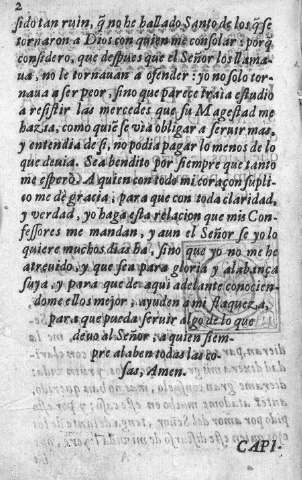 2
sido tan ruin, q̃ no he hallado Santo de los q̃ se
tornaron a Dios con quien me consolar: porq̃
considero, que despues que el Señor los llama-
ua, no le tornauan a ofender: yo no solo tor-
naua a ser peor, sino que parece traia estudio
a resistir las mercedes que su Magestad me
hazia, como quiẽ se via obligar a seruir mas,
y entendia de si, no podia pagar lo menos de lo
que deuia. Sea bendito por siempre que tanto
me esperò. A quien con todo mi coraçon supli-
co me dè gracia, para que con toda claridad,
y verdad, yo haga esta relacion que mis Con-
fessores me mandan, y aun el Señor se yo lo
quiere muchos dias ha, sino que yo no me he
atreuido, y que sea para gloria y alabança
suya, y para que de aqui adelante conocien-
dome ellos mejor, ayuden a mi flaqueza,
para que pueda seruir algo de lo que
deuo al Señor, a quien siem-
pre alaben todas las co-
sas, Amen.
CAPI-